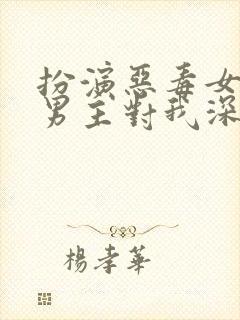 扮演惡毒女
男主對我深
楊孝華